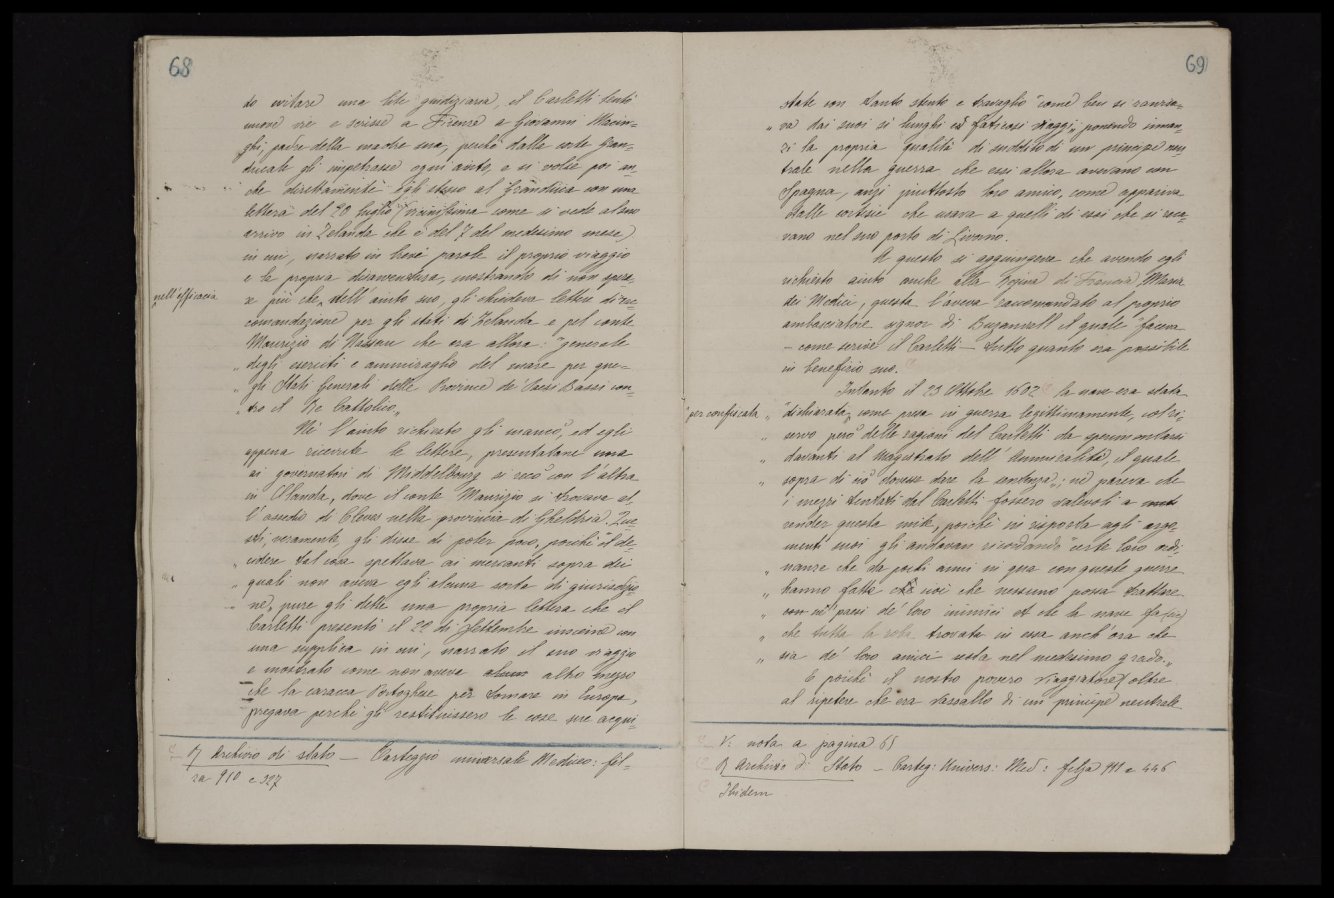 68
do evitare una lite giudiziaria, il Carletti tentò
nuove vie e scrisse a Firenze a Giovanni Macin=
ghi, padre della madre sua, perchè dalla corte Gran=
ducale gli impetrasse ogni aiuto, e si volse poi an=
che direttamente egli stesso al Granduca con una
lettera del 20 luglio (vicinissima come si vede al suo
arrivo in Zelanda che è del 7 del medesimo mese)
in cui, narrato in brevi parole il proprio viaggio
e la propria disavventura, mostrando di non spera=
nell'efficacia
re più che dell'aiuto suo, gli chiedeva lettere di rac
comandazione per gli stati di Zelanda e pel conte
Maurizio di Nassau che era allora: "generale
" degli eserciti e ammiraglio del mare per que=
" gli Stati Generali delle Province de' Paesi Bassi con=
" tro il Re Cattolico „
Nè l'aiuto richiesto gli mancò, ed egli
appena ricevute le lettere, presentatane una
ai governatori di Middelbourg si recò con l'altra
in Olanda, dove il conte Maurizio si trovava al
l'assedio di Cleves nella provincia di Gheldria. Que
sti, veramente, gli disse di poter poco, poichè "il de=
" cidere tal cosa spettava ai mercanti sopra dei
" quali non aveva egli alcuna sorta di giurisdizio
ne „ pure gli dette una propria lettera che il
Carletti presentò il 22 di Settembre insieme con
una supplica in cui, narrato il suo viaggio
e mostrato come non aveva alcun altro mezzo
che la caracca Portoghese per tornare in Europa,
pregava perchè gli restituissero le cose sue acqui=
R Archivio di stato — Carteggio universale Mediceo: fil=
za 910 c 327
69
state con tanto stento e travaglio "come ben si ranzia=
" va dai suoi sì lunghi ed faticosi viaggi „ ponendo innan=
zi la propria qualità di suddito di un principe neu
trale nella guerra che essi allora avevano con
Spagna, anzi piuttosto loro amico, come appariva
dalle cortesie che usava a quelli di essi che si reca=
vano nel suo porto di Livorno.
A questo si aggiungeva che avendo egli
richiesto aiuto anche alla Regina di Francia Maria
dei Medici, questa l'aveva raccomandato al proprio
ambasciatore signor di Buzanvall il quale "faceva
— come scrive il Carletti — tutto quanto era possibile
in benefizio suo.
Intanto il 23 Ottobre 1602 la nave era stata
per confiscata
" "dichiarata, come presa in guerra legittimamente, col ri=
" servo però delle ragioni del Carletti da sperimentarsi
" davanti al Magistrato dell'Ammiralità, il quale
" sopra di ciò dovesse dare la sentenza „; nè pareva che
i mezzi tentati dal Carletti fossero valevoli a
render questa mite, poichè in risposta agli argo
menti suoi gli andavan ricordando "certe loro ordi
" nanze che da pochi anni in qua con queste guerre
" hanno fatte cioè che nessuno possa trattare
" con ne' paesi de' loro inimici et che la nave fa (sic)
" che tutta la roba trovata in essa anch'ora che
" sia de' loro amici resta nel medesimo grado. „
E poichè il nostro povero viaggiatore oltre
al ripetere che era vassallo di un principe neutrale
V: nota a pagina 65
R Archivio di Stato — Carteg: Univers: Med: filza 911 c 446
Ibidem